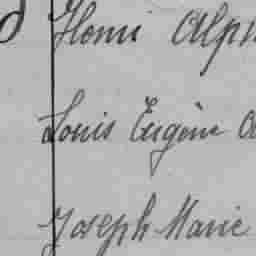 Henri Alph
Louis Eugène
Joseph Marie